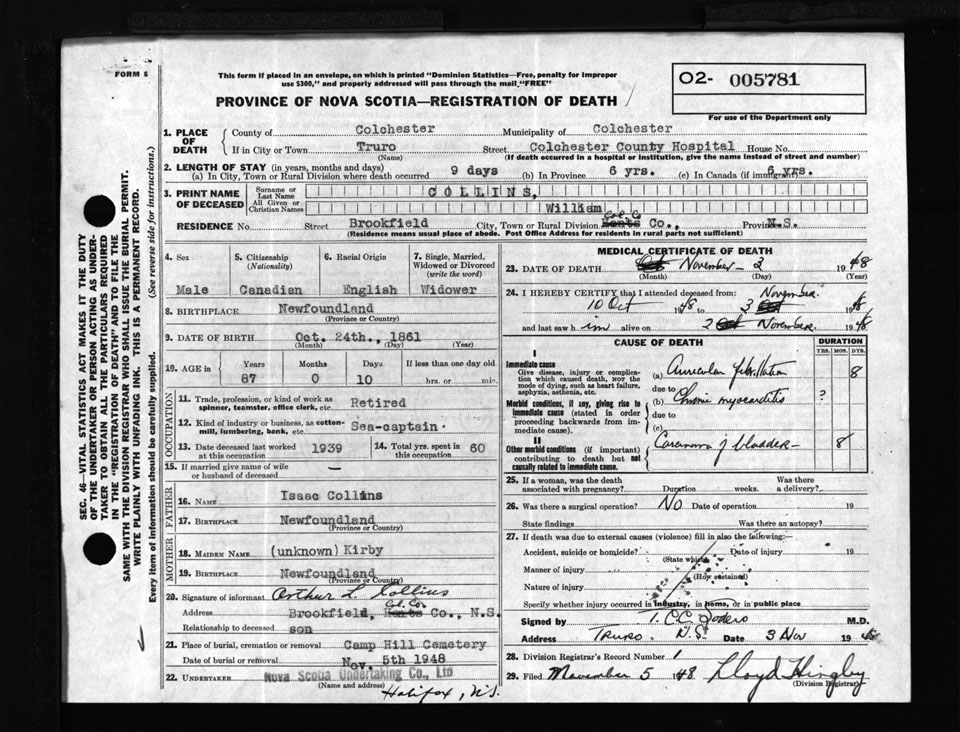 FORM 6
This form if placed in an envelope, on which is printed "Dominion Statistics—Free, penalty for improper
use $300," and properly addressed will pass through the mail "FREE"
PROVINCE OF NOVA SCOTIA—REGISTRATION OF DEATH
O2- 005781
For use of the Department only
SEC. 46—VITAL STATISTICS ACT MAKES IT THE DUTY
OF THE UNDERTAKER OR PERSON ACTING AS UNDER-
TAKER TO OBTAIN ALL THE PARTICULARS REQUIRED
IN THE "REGISTRATION OF DEATH" AND TO FILE THE
SAME WITH THE DIVISION REGISTRAR WHO SHALL ISSUE THE BURIAL PERMIT.
WRITE PLAINLY WITH UNFADING INK. THIS IS A PERMANENT RECORD.
Every item of information should be carefully supplied. (See reverse side for instructions.)
1. PLACE OF DEATH
County of Colchester Municipality of Colchester
If in City or Town Truro Street Colchester County Hospital House No.
(Name) (If death occurred in a hospital or institution, give the name instead of street and number)
2. LENGTH OF STAY (in years, months and days)
(a) In City, Town or Rural Division where death occurred 9 days (b) In Province 6 yrs. (c) In Canada (if immigrant) 6 yrs.
3. PRINT NAME OF DECEASED
Surname or Last Name COLLINS,
All Given or Christian Names William
RESIDENCE No. Street Brookfield City, Town or Rural Division Col. Co Hants Co., Province N.S.
(Residence means usual place of abode. Post Office Address for residents in rural parts not sufficient)
4. Sex 5. Citizenship (Nationality) 6. Racial Origin 7. Single, Married, Widowed or Divorced (write the word)
Male Canadian English Widower
8. BIRTHPLACE Newfoundland
(Province or Country)
9. DATE OF BIRTH Oct. 24th., 1861
(Month) (Day) (Year)
10. AGE in Years Months Days If less than one day old
87 0 10 hrs. or min.
OCCUPATION
11. Trade, profession, or kind of work as spinner, teamster, office clerk, etc. Retired
12. Kind of industry or business, as cotton-mill, lumbering, bank, etc. Sea-captain
13. Date deceased last worked at this occupation 1939 14. Total yrs. spent in this occupation 60
15. If married give name of wife or husband of deceased —
FATHER
16. NAME Isaac Collins
17. BIRTHPLACE Newfoundland
(Province or Country)
MOTHER
18. MAIDEN NAME (unknown) Kirby
19. BIRTHPLACE Newfoundland
(Province or Country)
20. Signature of informant Arthur L. Collins
Address Brookfield, Col. Co. Hants Co., N.S.
Relationship to deceased son
21. Place of burial, cremation or removal Camp Hill Cemetery
Date of burial or removal Nov. 5th 1948
22. UNDERTAKER Nova Scotia Undertaking Co., Ltd
(Name and address) Halifax, N.S.
MEDICAL CERTIFICATE OF DEATH
23. DATE OF DEATH Oct November - 3 1948
(Month) (Day) (Year)
24. I HEREBY CERTIFY that I attended deceased from: November
10 Oct 1948 to 3 Oct 1948
and last saw h im alive on 2 Oct November. 1948
CAUSE OF DEATH DURATION
YRS. MOS. DYS.
I
Immediate cause
Give disease, injury or complication which caused death, NOT the mode of dying, such as heart failure, asphyxia, asthenia, etc.
(a) Auricular fibrillation 8
due to
Morbid conditions, if any, giving rise to immediate cause (stated in order proceeding backwards from immediate cause).
(b) Chronic myocarditis ?
due to
(c)
II
Other morbid conditions (if important) contributing to death but not causally related to immediate cause.
Carcinoma of bladder - 8
25. If a woman, was the death associated with pregnancy? Duration weeks. Was there a delivery?
26. Was there a surgical operation? No Date of operation 19
State findings Was there an autopsy?
27. If death was due to external causes (violence) fill in also the following:—
Accident, suicide or homicide? Date of injury 19
(State which)
Manner of injury
(How sustained)
Nature of injury
Specify whether injury occurred in industry, in home, or in public place
Signed by T. C. C. M.D.
Address Truro. N.S. Date 3 Nov 1948
28. Division Registrar's Record Number 1
29. Filed November 5 1948 Lloyd
(Division Registrar)